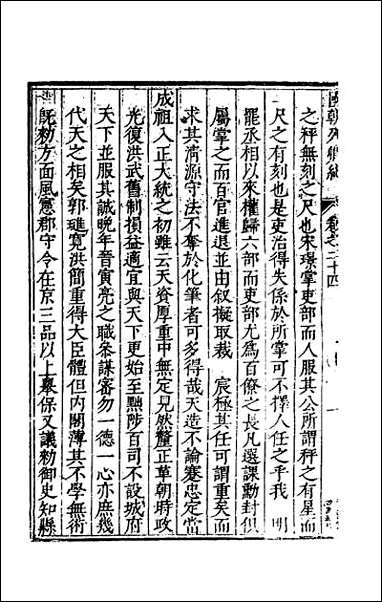 國朝列卿紀 卷之二十四
之秤無刻之尺也宋璟掌吏部而人服其公所謂秤之有星而
尺之有刻也是吏治得失係於所掌可不擇人任之乎我 明
罷丞相以來權歸六部而吏部尤為百僚之長凡選課勳封俱
屬掌之而百官進退並由叙擬取裁 宸極其任可謂重矣而
求其清源守法不奪於化筆者可多得哉天造不論蹇忠定當
成祖入正大統之初雖云天資厚重中無定見然釐正革朝時政
光復洪武舊制損益適宜與天下更始至黜陟百司不設城府
天下並服其誠晚年晉寅亮之職參謀密勿一德一心亦庶幾
代天之相矣郭璡寬洪簡重得大臣體但內閣薄其不學無術
既勑方面風憲郡守令在京三品以上舉保又議勑御史知縣